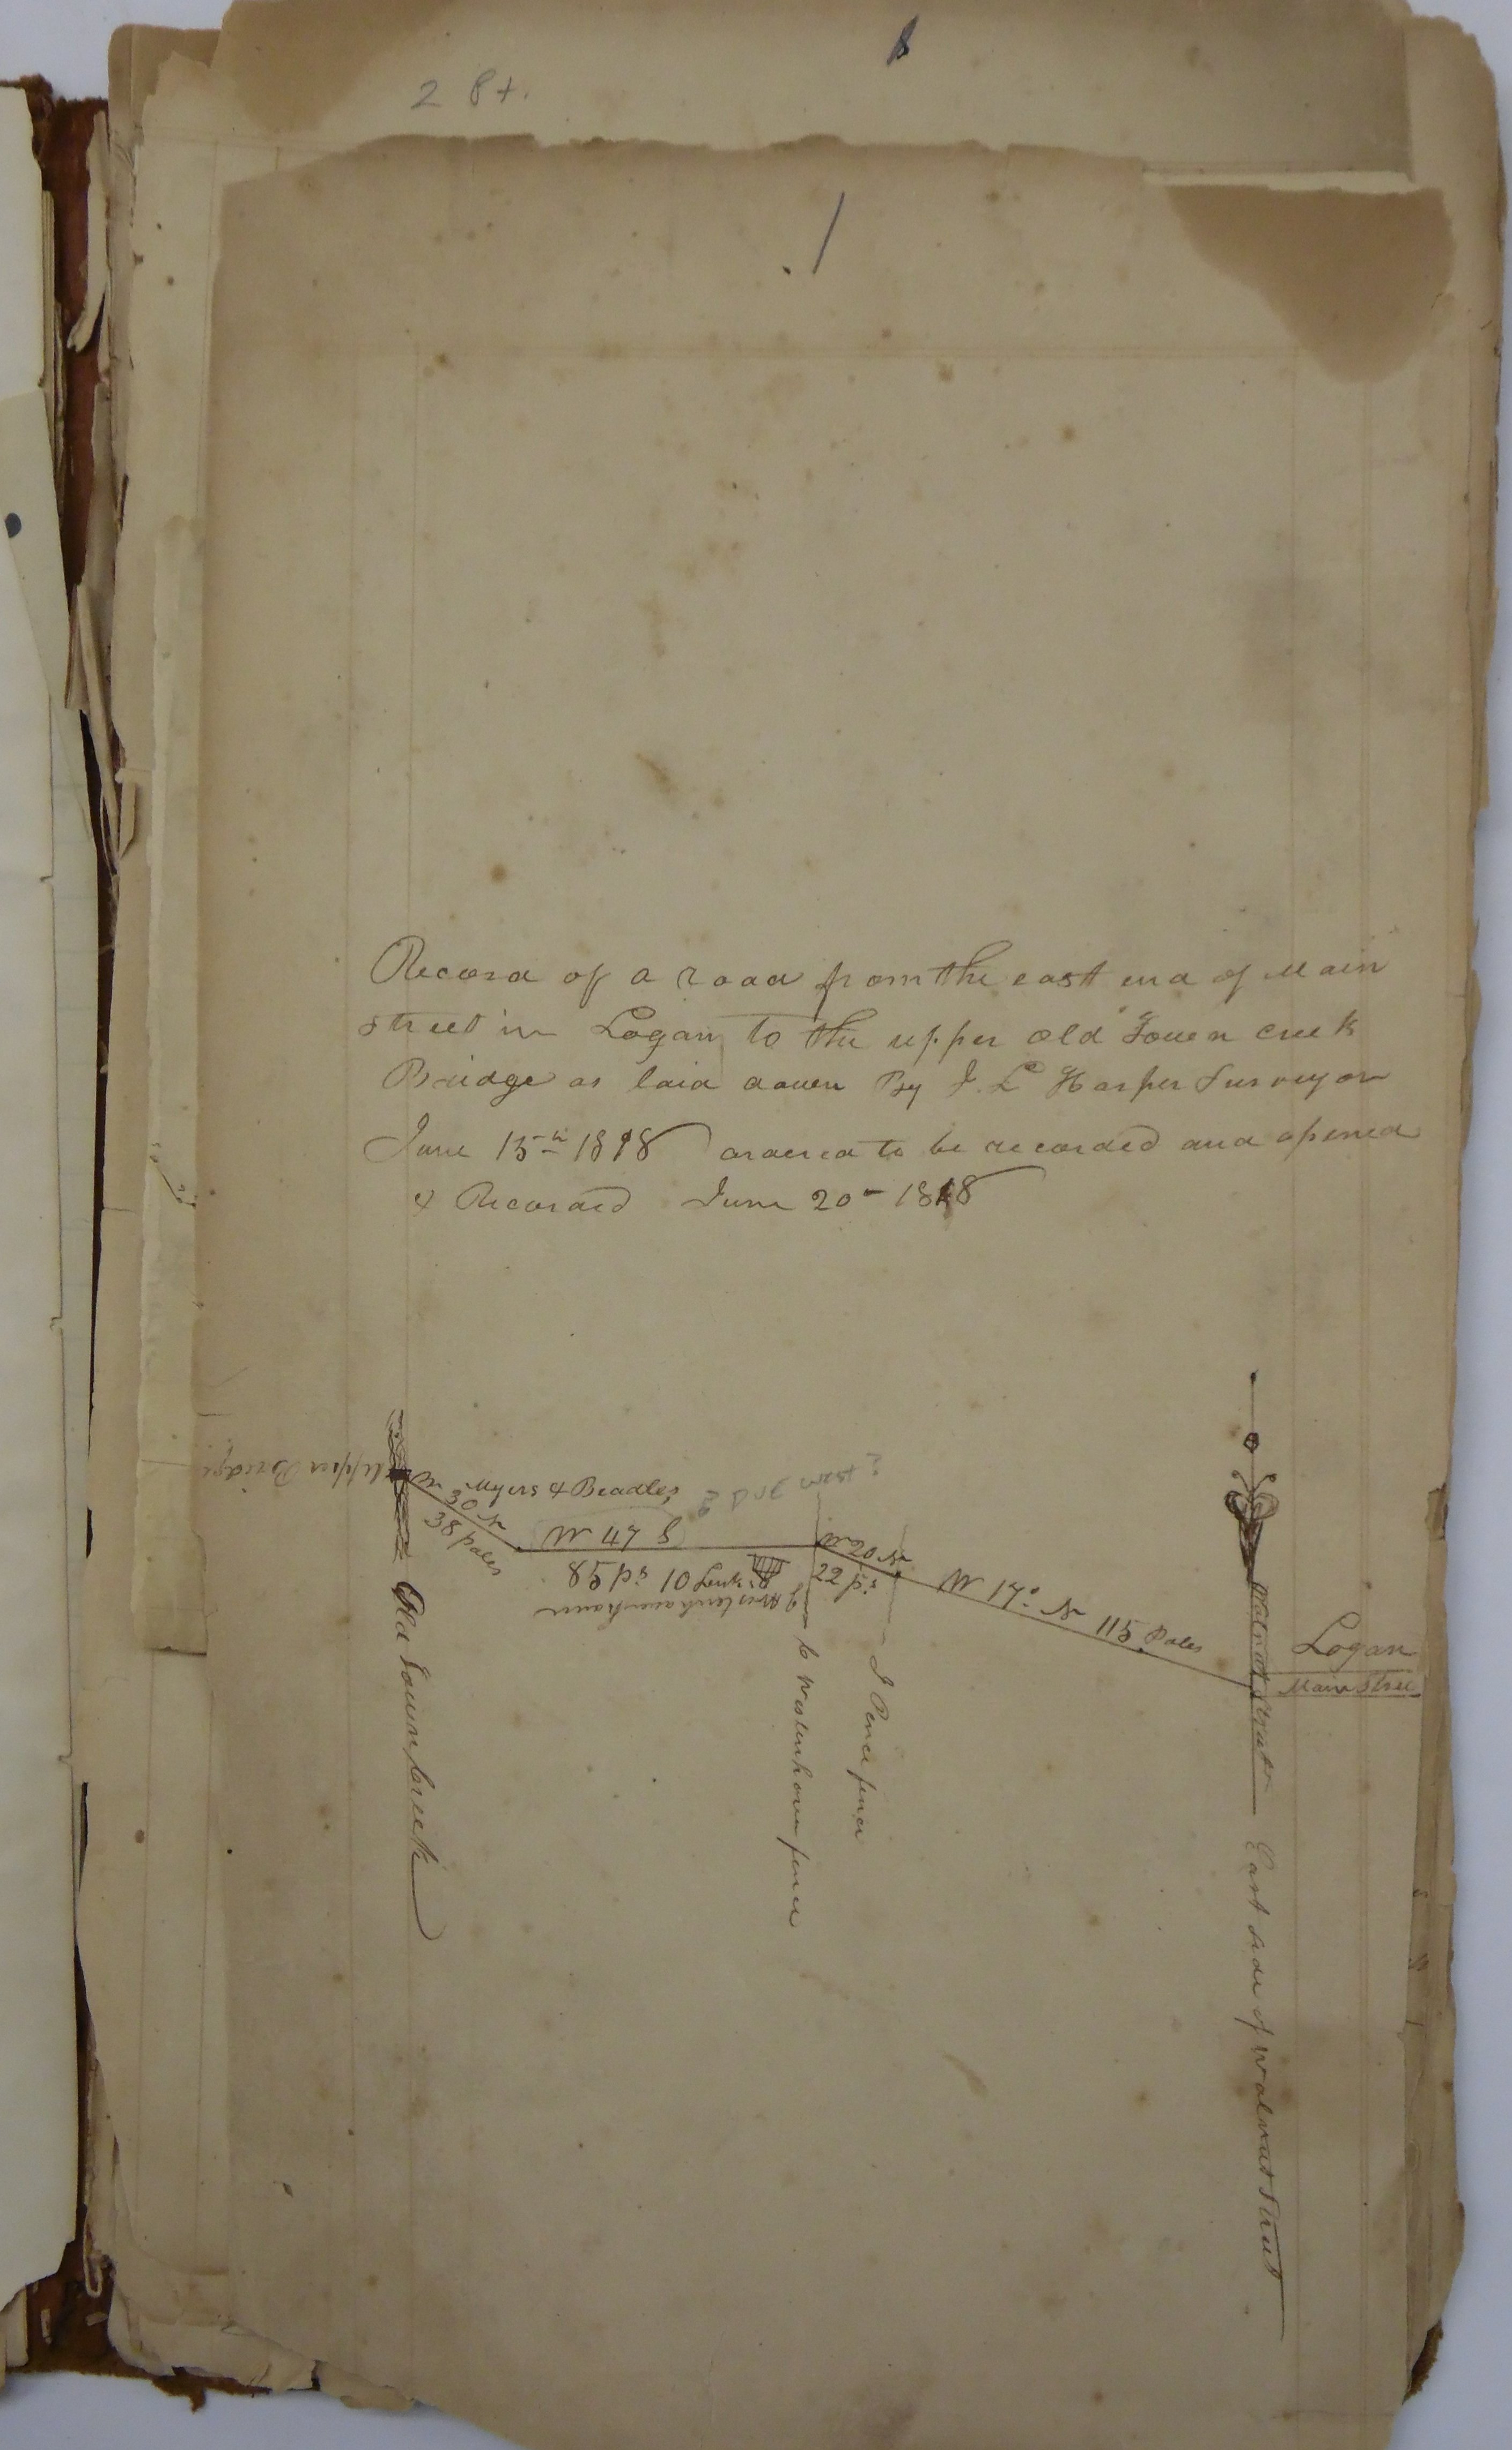 2 Pt.
1
Record of a road from the east end of Main
street in Logan to the upper old Town creek
Bridge as laid down By J. L Harper Surveyor
June 15th 1818 ordered to be recorded and opened
& Recorded June 20th 1818
upper Bridge
Myers & Beadles
2nd west
W 30 N
38 poles
W 4½ S
98 p's
W 20 N
22 p's
W 17° N 115 Poles
Logan
Main Stree
Old Town Creek
to Westenhaver fence
J Pence fence
Walnut Street
East side of Walnut Street